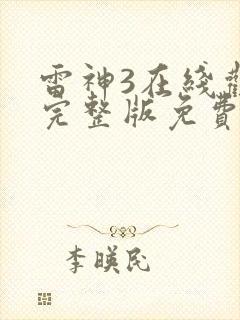 雷神3在线
完整版免費
李暎民